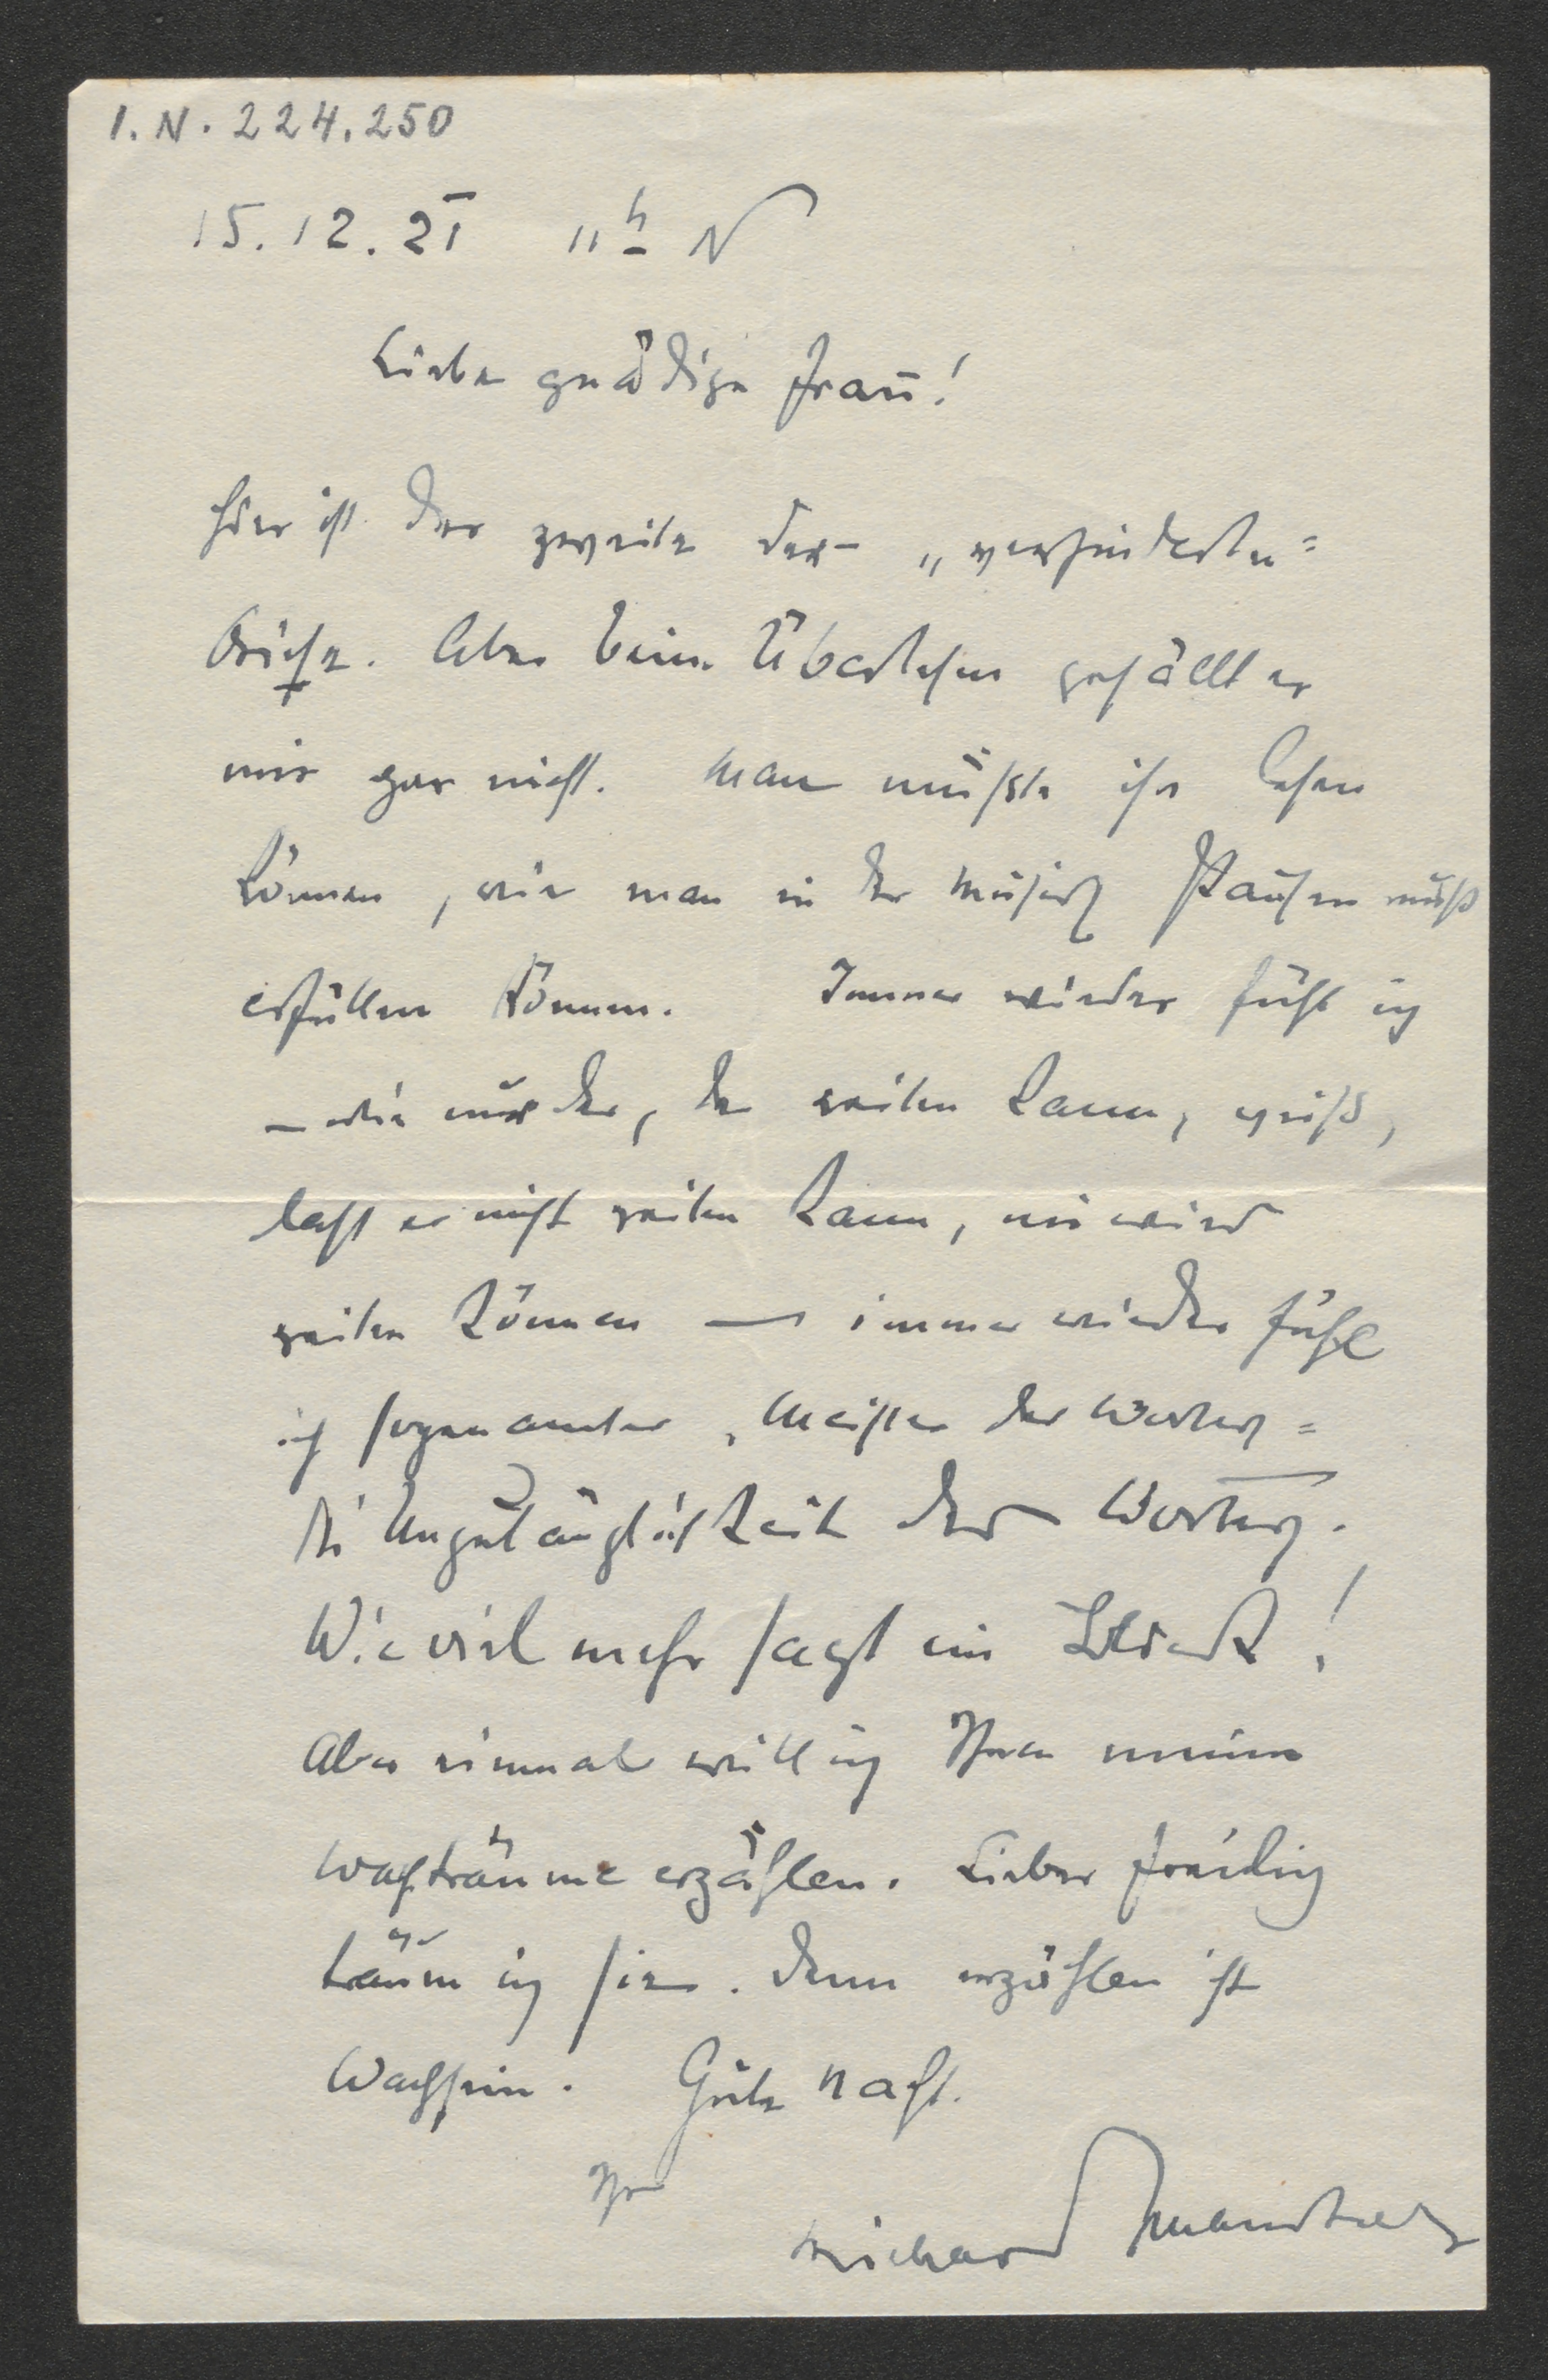 I.N. 224.250
15.12.21 11h N
Liebe gnädige Frau!
hier ist der zweite der „verhinderten"
Briefe. Aber beim Überlesen gefällt er
mir gar nicht. Man müßte ihn lesen
können, wie man in der Musik Pausen muß
erfüllen können. Immer wieder fühl ich
– wie nur der, der reiten kann, weiß,
daß er nicht reiten kann, nie wird
reiten können — immer wieder fühle
ich sogenannter „Meister des Wortes"
die Unzulänglichkeit des Wortes.
Wie viel mehr sagt ein Blick!
Aber einmal will ich Ihnen meine
Wachträume erzählen. Lieber freilich
träum ich sie. Denn erzählen ist
Wachsein. Gute Nacht.
Ihr
Richard